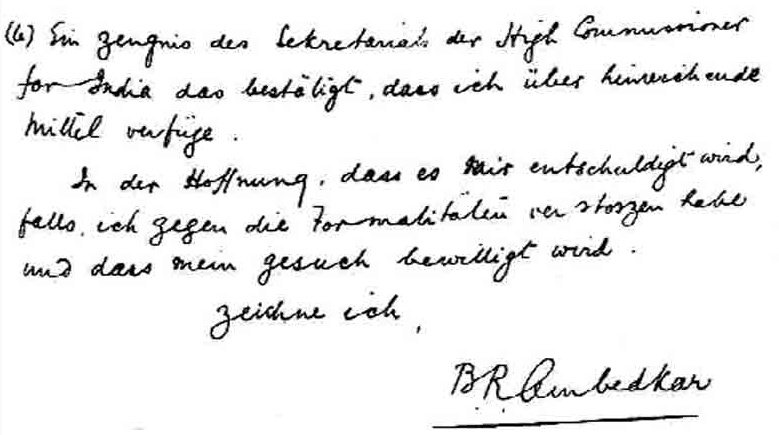 (6) Ein zeugnis des Sekretariats der High Commissioner
for India das bestätigt, dass ich über hinreichende
Mittel verfüge.
In der Hoffnung, dass es mir entschuldigt wird,
falls, ich gegen die Formalitäten verstoszen habe
und dass mein gesuch bewilligt wird.
zeichne ich,
B. R. Ambedkar